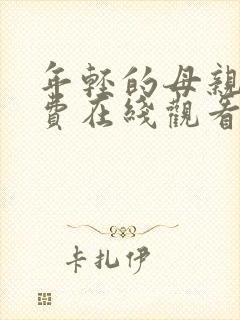 年轻的母亲
費在綫觀看
卡扎伊